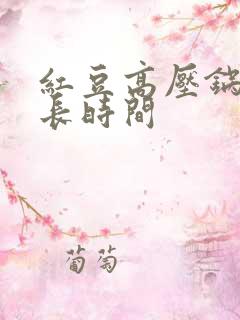 紅豆高壓鍋
長時間
葡萄